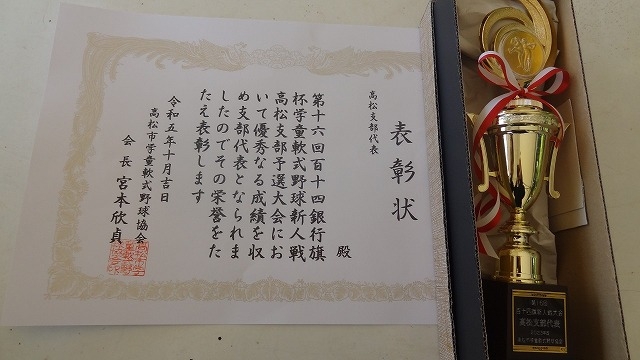 表彰状
高松支部代表
殿
第十六回百十四銀行旗
杯学童軟式野球新人戦
高松支部予選大会にお
いて優秀なる成績を収
め支部代表となられま
したのでその栄誉をた
たえ表彰します
令和五年十月吉日
高松市学童軟式野球協会
会長 宮本欣貞
高松支部代表